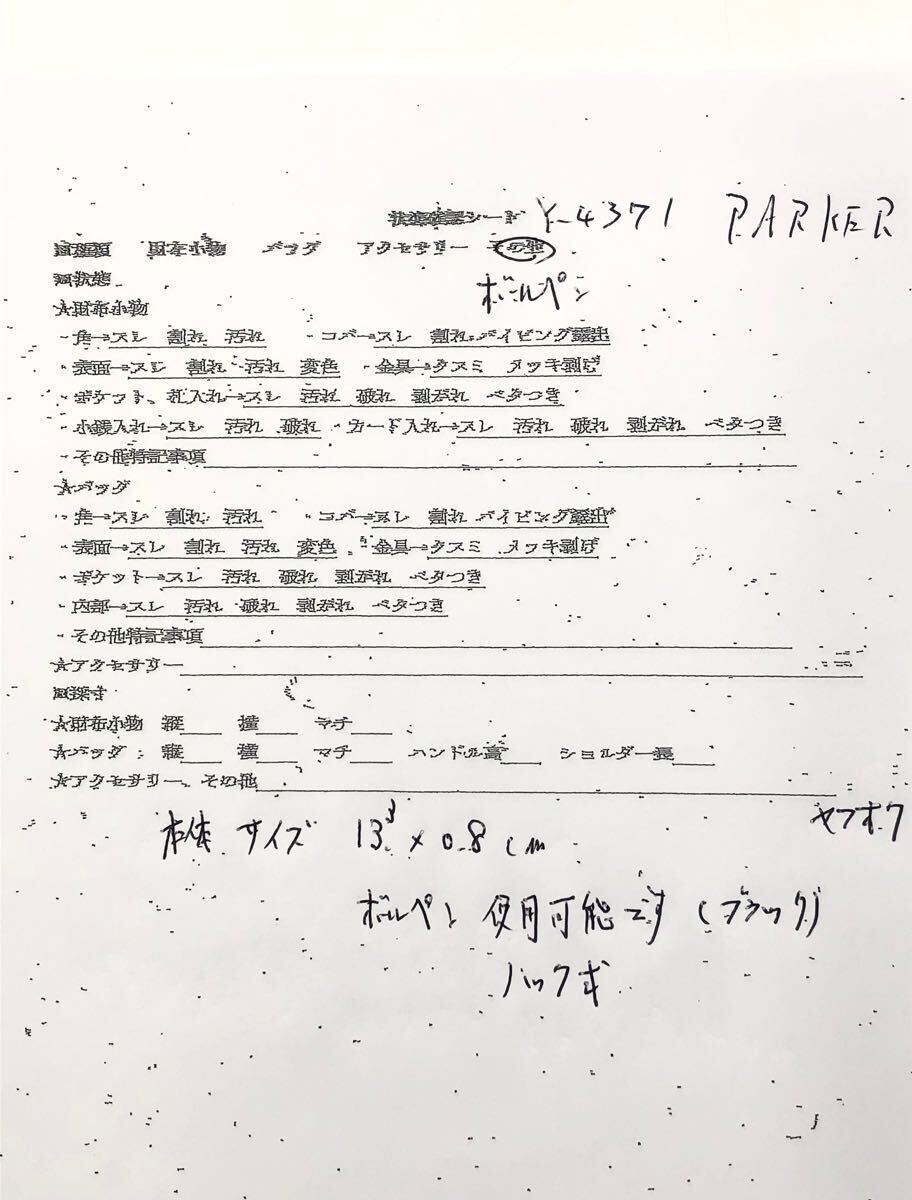 状態確認シート Y-4371 PARKER
財布小物 バッグ アクセサリー その他
ボールペン
☑状態
☆財布小物
・角→スレ 割れ 汚れ ・コバ→スレ 割れ パイピング露出
・表面→スレ 割れ 汚れ 変色 ・金具→クスミ メッキ剥げ
・ポケット、札入れ→スレ 汚れ 破れ 剥がれ ベタつき
・小銭入れ→スレ 汚れ 破れ ・カード入れ→スレ 汚れ 破れ 剥がれ ベタつき
・その他特記事項
☆バッグ
・角→スレ 割れ 汚れ ・コバ→スレ 割れ パイピング露出
・表面→スレ 割れ 汚れ 変色 ・金具→クスミ メッキ剥げ
・ポケット→スレ 汚れ 破れ 剥がれ ベタつき
・内部→スレ 汚れ 破れ 剥がれ ベタつき
・その他特記事項
☆アクセサリー
☑採寸
☆財布小物 縦 横 マチ
☆バッグ 縦 横 マチ ハンドル高 ショルダー長
☆アクセサリー、その他
ヤフオク
本体 サイズ 13 × 0.8 cm
ボールペン 使用可能です (ブラック)
ノック式